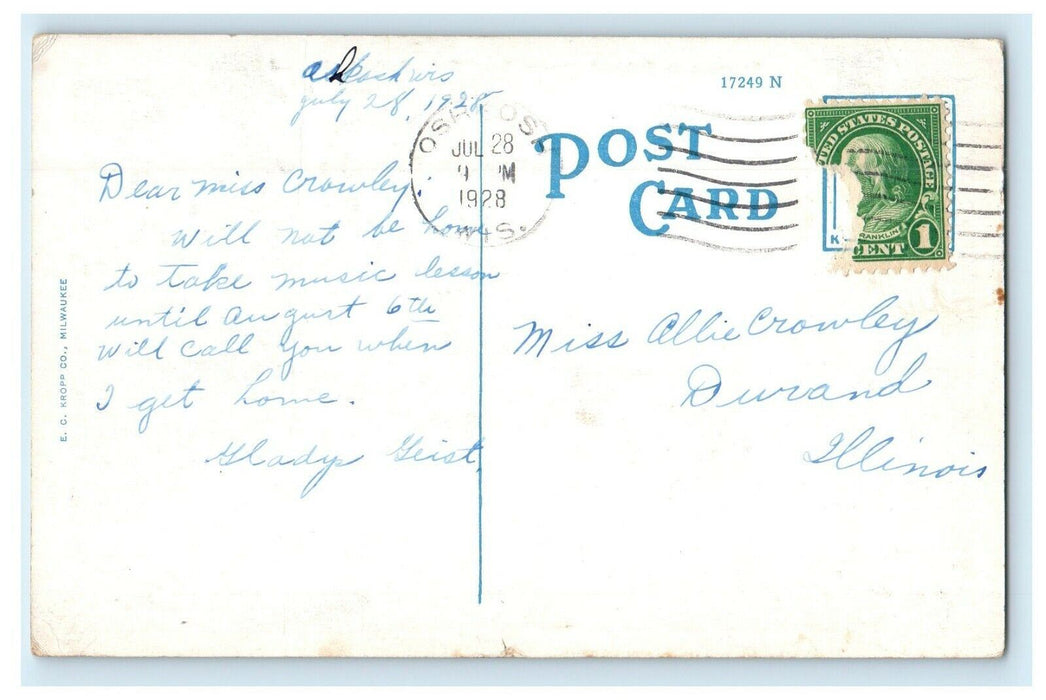 Oshkosh Wis
July 28, 1928
17249 N
OSHKOSH
JUL 28
M
1928
WIS.
POST
CARD
UNITED STATES POSTAGE
FRANKLIN
CENT 1
K
Dear Miss Crowley:
Will not be home
to take music lesson
until August 6th
Will call you when
I get home.
Gladys Geist.
Miss Allie Crowley
Durand
Illinois
E. C. KROPP CO., MILWAUKEE